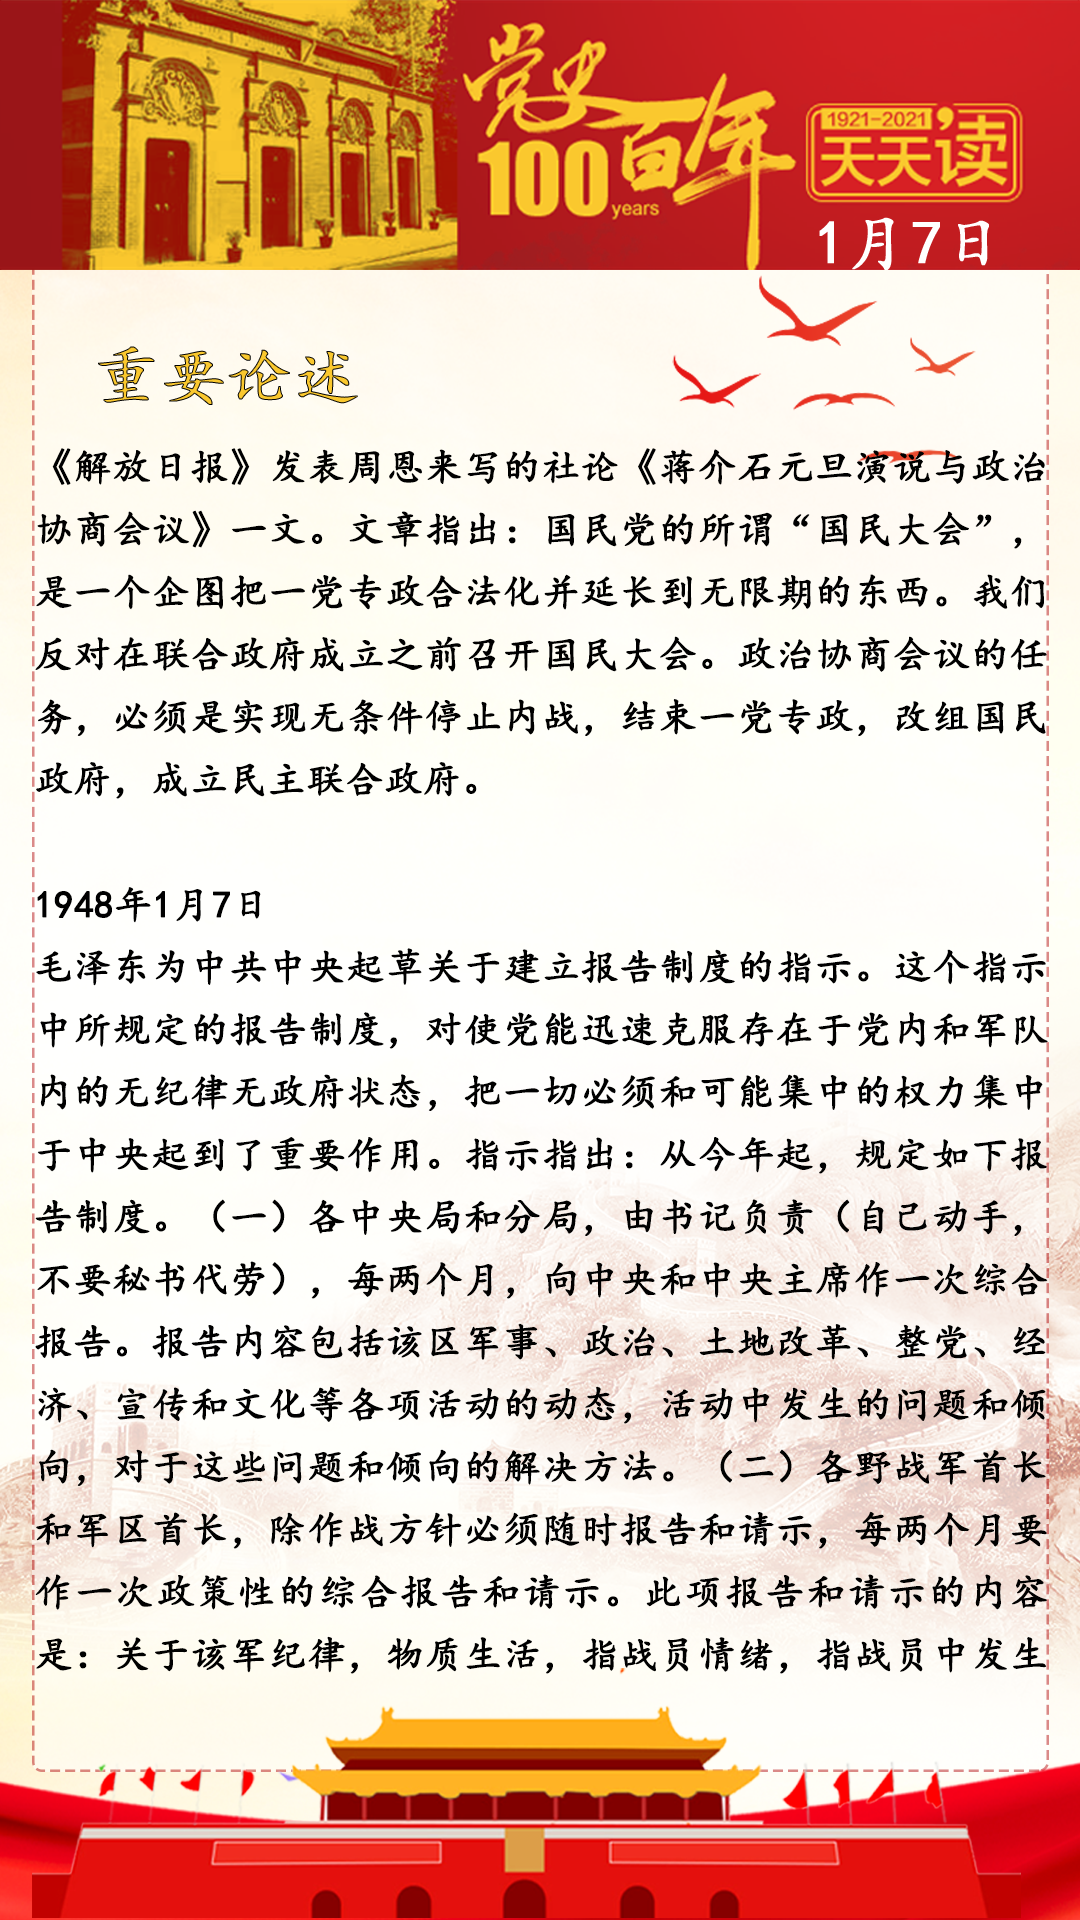 党史百年
100 years
1921-2021
天天读
1月7日
重要论述
《解放日报》发表周恩来写的社论《蒋介石元旦演说与政治
协商会议》一文。文章指出：国民党的所谓“国民大会”，
是一个企图把一党专政合法化并延长到无限期的东西。我们
反对在联合政府成立之前召开国民大会。政治协商会议的任
务，必须是实现无条件停止内战，结束一党专政，改组国民
政府，成立民主联合政府。
1948年1月7日
毛泽东为中共中央起草关于建立报告制度的指示。这个指示
中所规定的报告制度，对使党能迅速克服存在于党内和军队
内的无纪律无政府状态，把一切必须和可能集中的权力集中
于中央起到了重要作用。指示指出：从今年起，规定如下报
告制度。（一）各中央局和分局，由书记负责（自己动手，
不要秘书代劳），每两个月，向中央和中央主席作一次综合
报告。报告内容包括该区军事、政治、土地改革、整党、经
济、宣传和文化等各项活动的动态，活动中发生的问题和倾
向，对于这些问题和倾向的解决方法。（二）各野战军首长
和军区首长，除作战方针必须随时报告和请示，每两个月要
作一次政策性的综合报告和请示。此项报告和请示的内容
是：关于该军纪律，物质生活，指战员情绪，指战员中发生